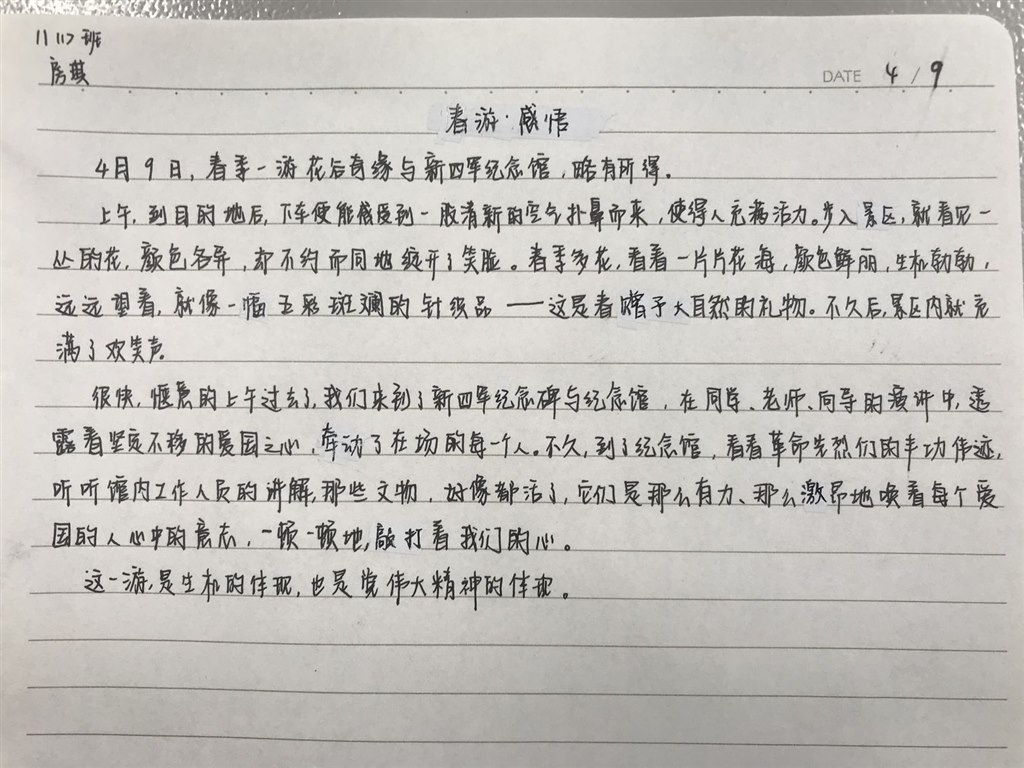 11 117 班
房琪
DATE 4 / 9
春游·感悟
4月9日，春季一游花后奇缘与新四军纪念馆，略有所得。
上午，到目的地后，下车便能感受到一股清新的空气扑鼻而来，使得人充满活力。步入景区，就看见一
丛的花，颜色各异，却不约而同地绽开了笑脸。春季多花，看着一片片花海，颜色鲜丽，生机勃勃，
远远望着，就像一幅五彩斑斓的针织品——这是春赠予大自然的礼物。不久后，景区内就充
满了欢笑声。
很快，惬意的上午过去了，我们来到了新四军纪念碑与纪念馆，在同学、老师、同导的演讲中，透
露着坚定不移的爱国之心，牵动了在场的每一个人。不久，到了纪念馆，看看革命先烈们的丰功伟迹，
听听馆内工作人员的讲解，那些文物，好像都活了，它们是那么有力、那么激昂地唤着每个爱
国的人心中的意志，一顿一顿地，敲打着我们的心。
这一游，是生机的体现，也是党伟大精神的体现。